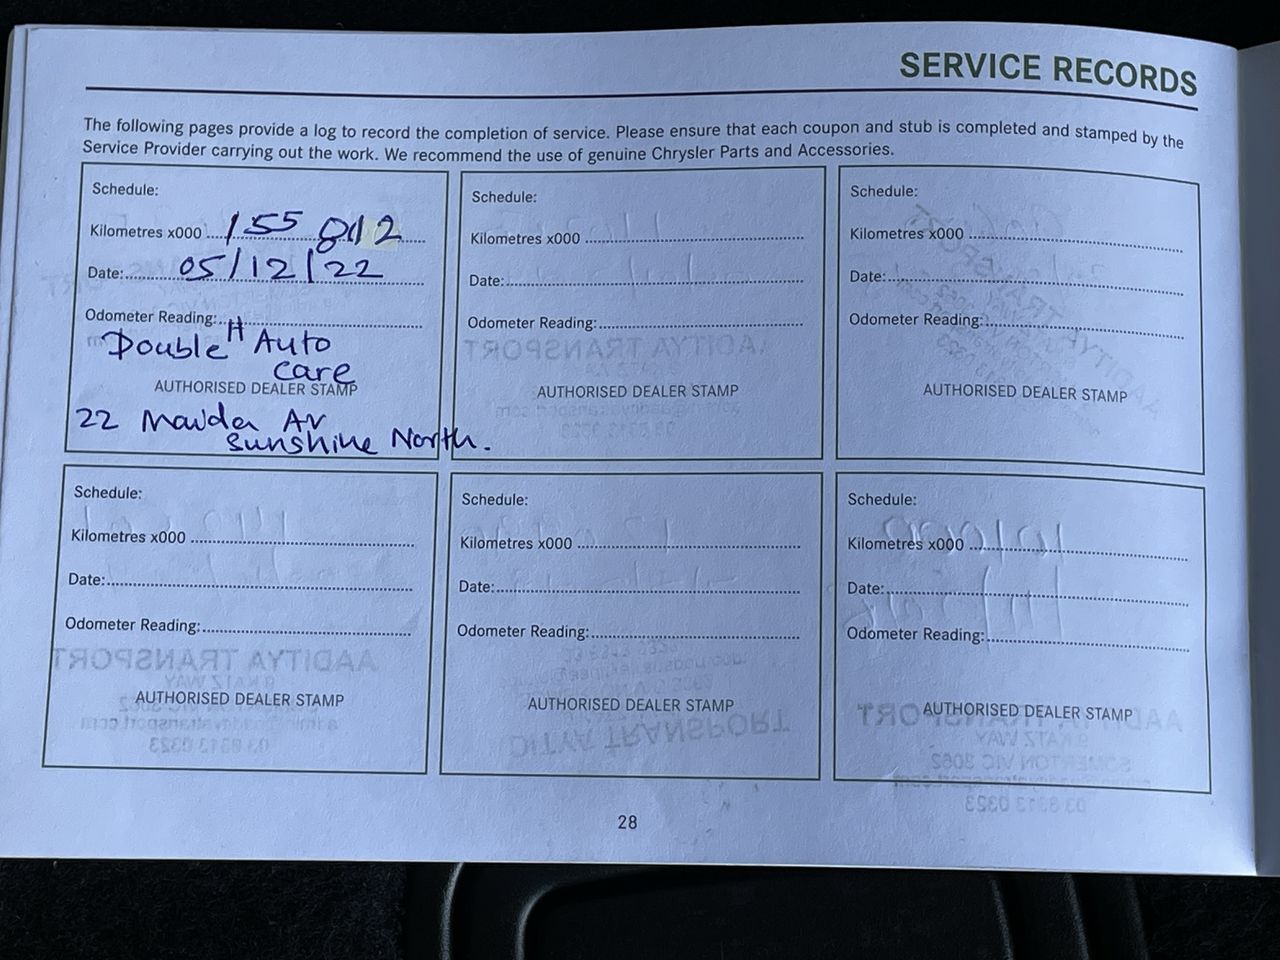 SERVICE RECORDS
The following pages provide a log to record the completion of service. Please ensure that each coupon and stub is completed and stamped by the
Service Provider carrying out the work. We recommend the use of genuine Chrysler Parts and Accessories.
Schedule:
Kilometres x000 155 812
Date: 05/12/22
Odometer Reading:
Double H Auto
care
AUTHORISED DEALER STAMP
22 Maida Av
Sunshine North.
Schedule:
Kilometres x000
Date:
Odometer Reading:
AUTHORISED DEALER STAMP
Schedule:
Kilometres x000
Date:
Odometer Reading:
AUTHORISED DEALER STAMP
Schedule:
Kilometres x000
Date:
Odometer Reading:
AUTHORISED DEALER STAMP
Schedule:
Kilometres x000
Date:
Odometer Reading:
AUTHORISED DEALER STAMP
Schedule:
Kilometres x000
Date:
Odometer Reading:
AUTHORISED DEALER STAMP
28